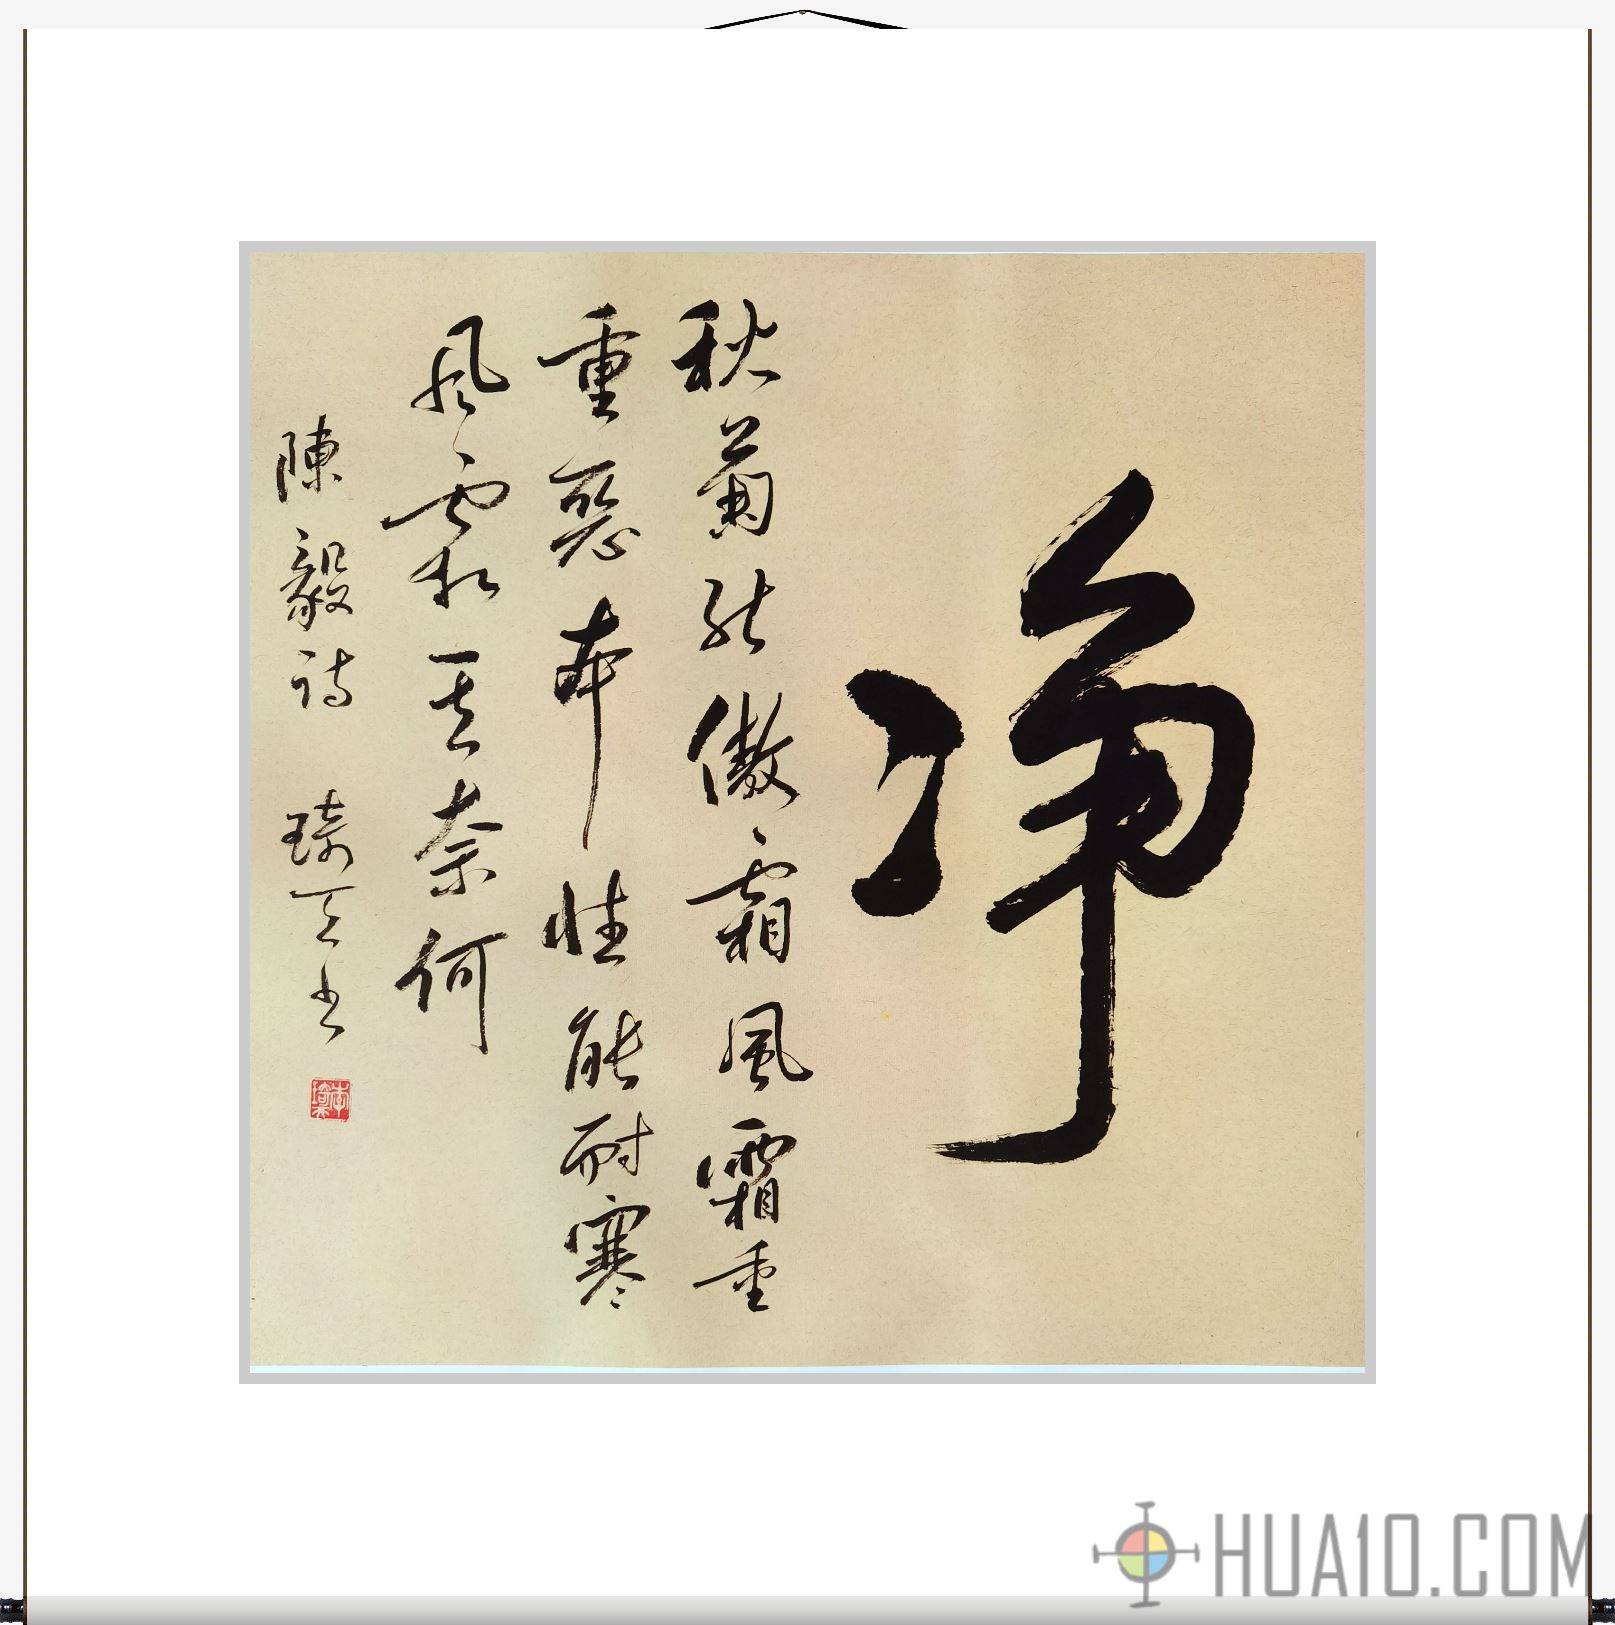 净
秋菊能傲霜風霜重
重惡本性能耐寒
风霜其奈何
陳毅诗 琦 书
HUA10.COM